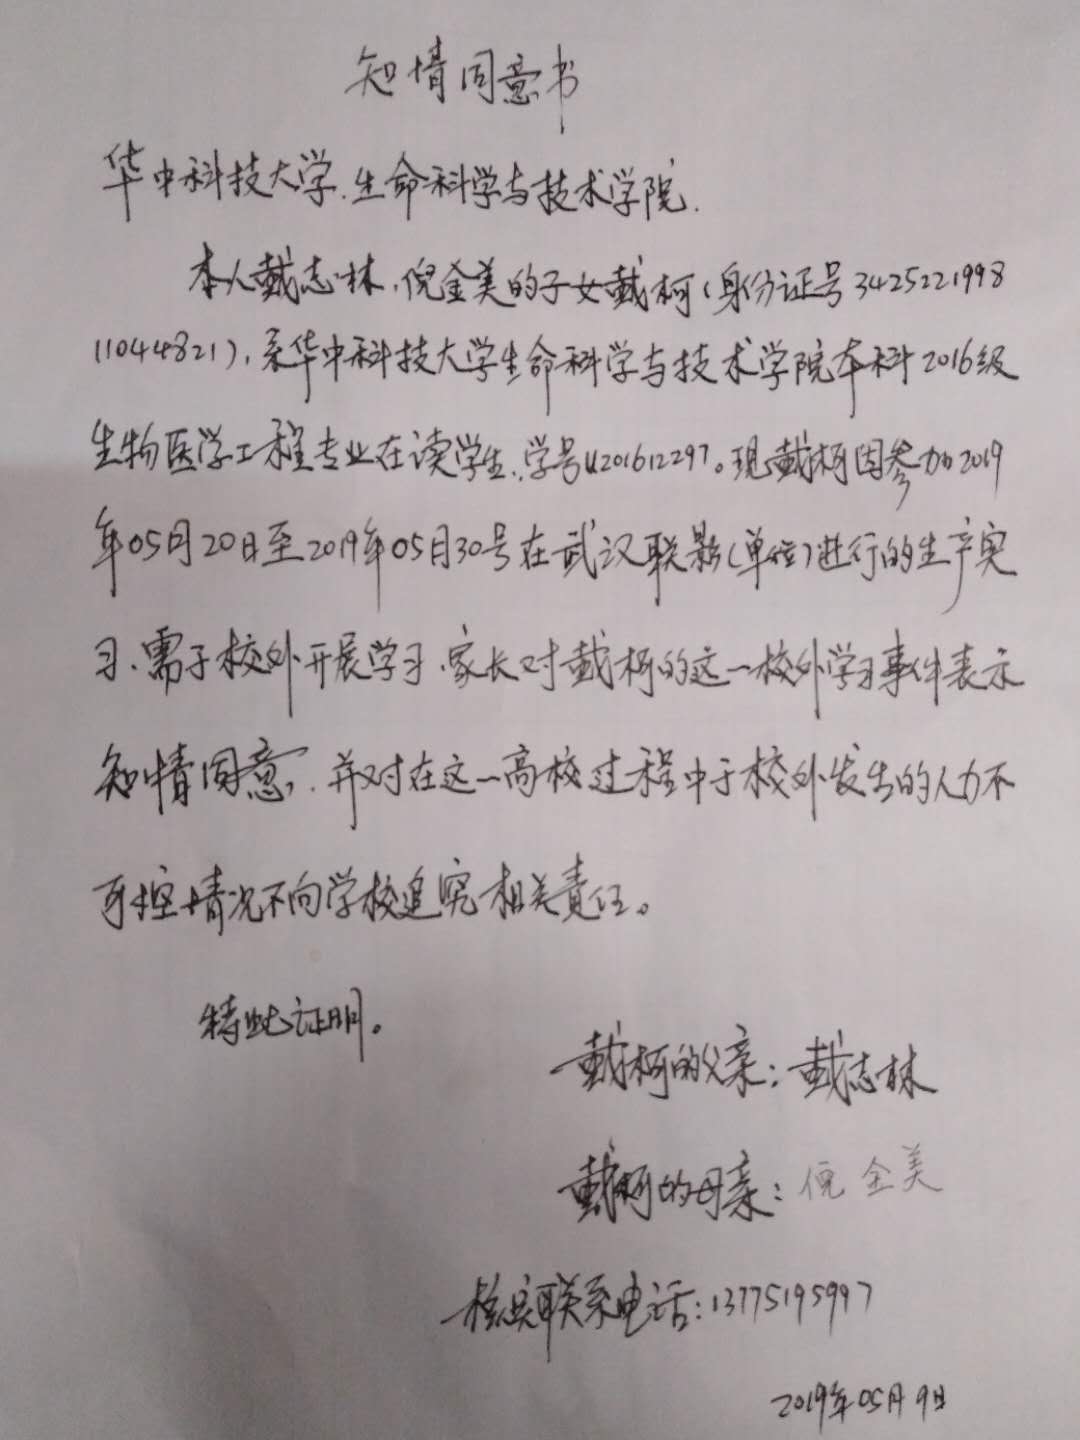 知情同意书
华中科技大学.生命科学与技术学院.
本人戴志林,倪金美的子女戴柯(身份证号3425221998
11044821),系华中科技大学生命科学与技术学院本科2016级
生物医学工程专业在读学生,学号U201612297。现戴柯因参加2019
年05月20日至2019年05月30号在武汉联影(单位)进行的生产实
习,需于校外开展学习,家长对戴柯的这一校外学习事件表示
知情同意,并对在这一高校过程中于校外发生的人力不
可控情况不向学校追究相关责任。
特此证明。
戴柯的父亲:戴志林
戴柯的母亲:倪金美
核实联系电话:13775195997
2019年05月9日